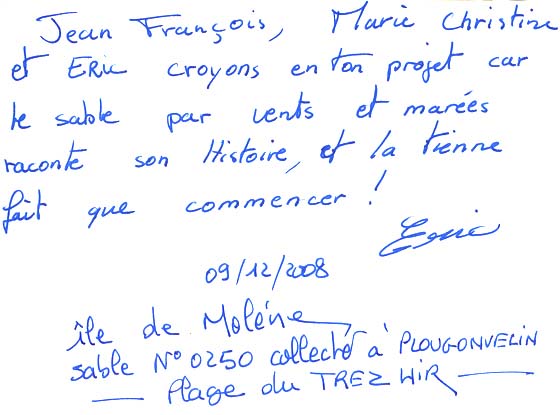 Jean François, Marie Christine
et Eric croyons en ton projet car
le sable par vents et marées
raconte son Histoire, et la tienne
fait que commencer !
Eric
09/12/2008
île de Molène
sable N° 0250 collecté à PLOUGONVELIN
Plage du TREZ HIR